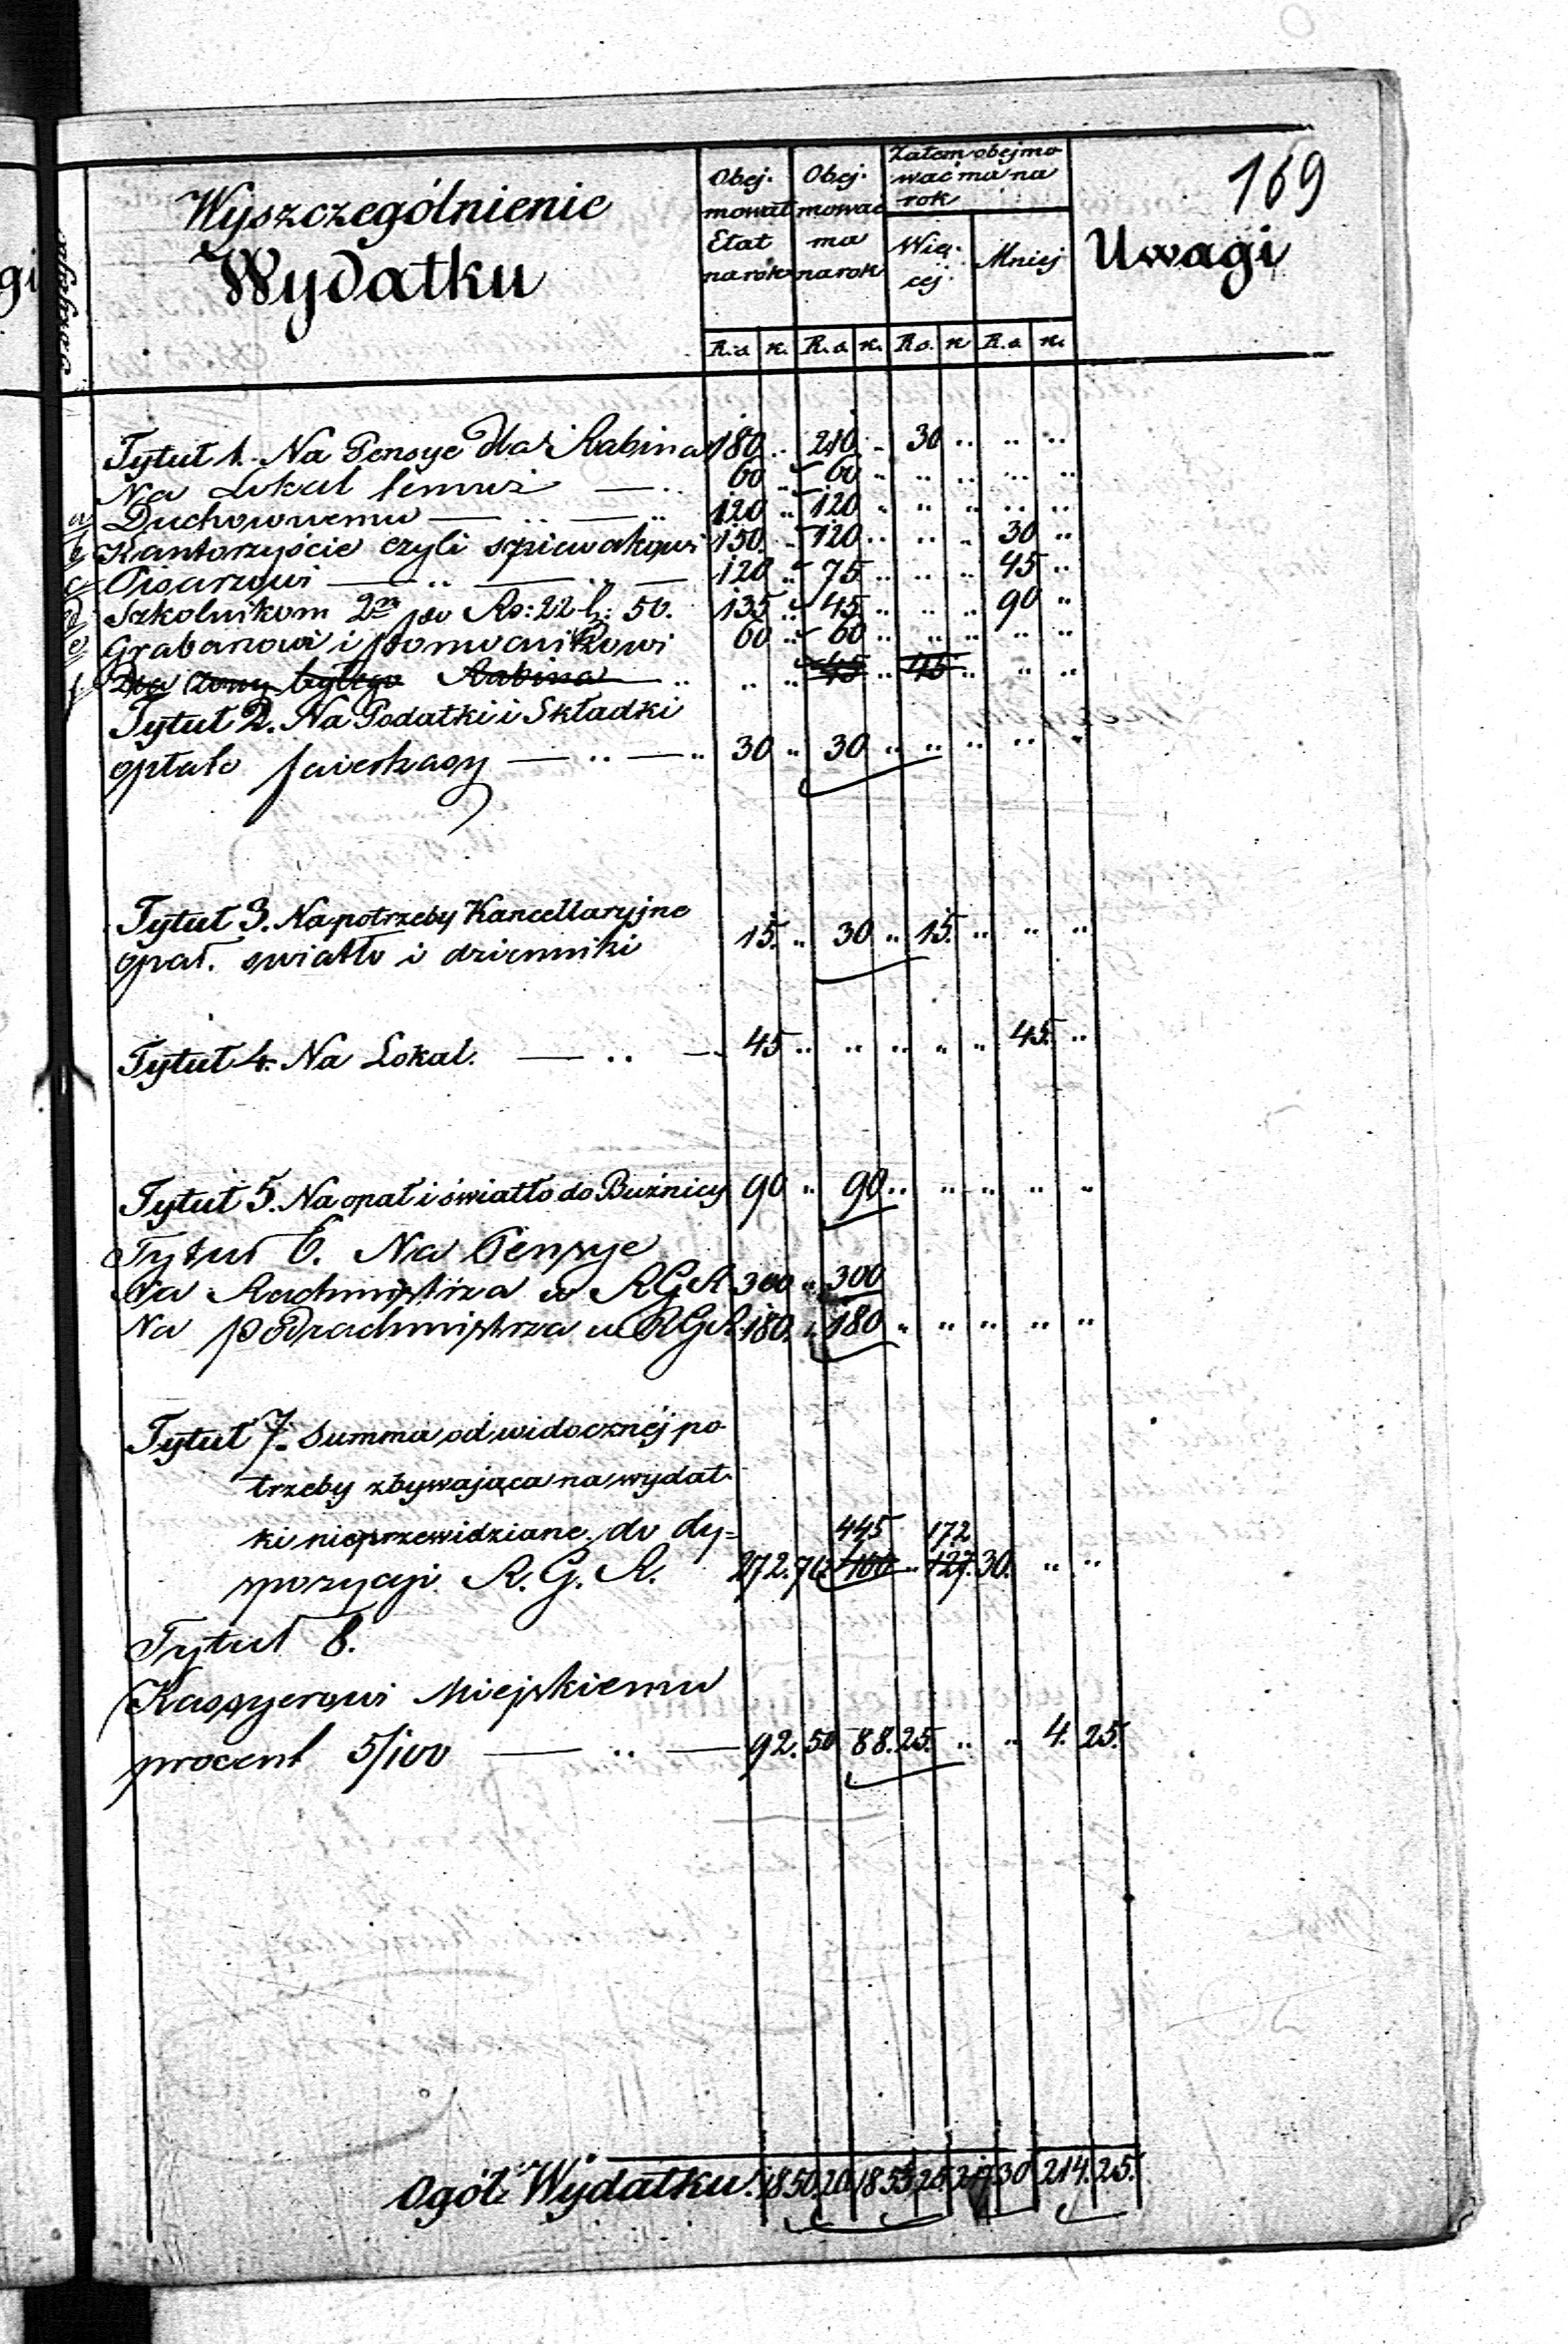 169
Wyszczególnienie
Wydatku
Obej-
mował
Etat
na rok
Obej-
mować
ma
na rok
Zatem obejmo
wać ma na
rok
Wię-
cej
Mniej
Uwagi
R.a k. R.a k. R.o. k R.a k.
Tytuł 1. Na Pensye dla Rabina 180 .. 210 .. 30 .. .. ..
Na Lokal temuż — .. 60 .. 60 .. .. .. .. ..
a/ Duchownemu — .. — .. 120 .. 120 .. .. .. .. ..
b/ Kantorzyście czyli śpiewakowi 150 .. 120 .. .. .. 30 ..
c/ Pisarzowi — .. — .. — 120 .. 75 .. .. .. 45 ..
d/ Szkolnikom 2m po Rs: 22 k: 50. 135 .. 45 .. .. .. 90 ..
e/ Grabarzowi i pomocnikowi 60 .. 60 .. .. .. .. ..
f/ Dla żony byłego Rabina — .. .. .. 45 .. 45 .. .. ..
Tytuł 2. Na Podatki i Składki
opłata — .. — .. 30 .. 30 .. .. .. .. ..
Tytuł 3. Na potrzeby Kancellaryjne
opał. swiatło i dzienniki 15. .. 30 .. 15. .. .. ..
Tytuł 4. Na Lokal. — .. — 45 .. .. .. .. .. 45. ..
Tytuł 5. Na opał i światło do Bużnicy 90 .. 90 .. .. .. .. ..
Tytuł 6. Na Pensye
Na Rachmistrza w RGR 300 .. 300
Na podrachmistrza w RGR. 180. .. 180 .. .. .. .. ..
Tytuł 7. Summa od widocznéj po-
trzeby zbywająca na wydat-
ki nieprzewidziane. do dy=
445 172
spozycji R. G. R. 272. 70. 400 .. 127. 30. .. ..
Tytuł 8.
Kassyerowi Miejskiemu
procent 5/100 — .. — 92. 50 88. 25. .. .. 4. 25.
Ogół Wydatku. 1850. 20 1853 25. 217 30 214. 25.